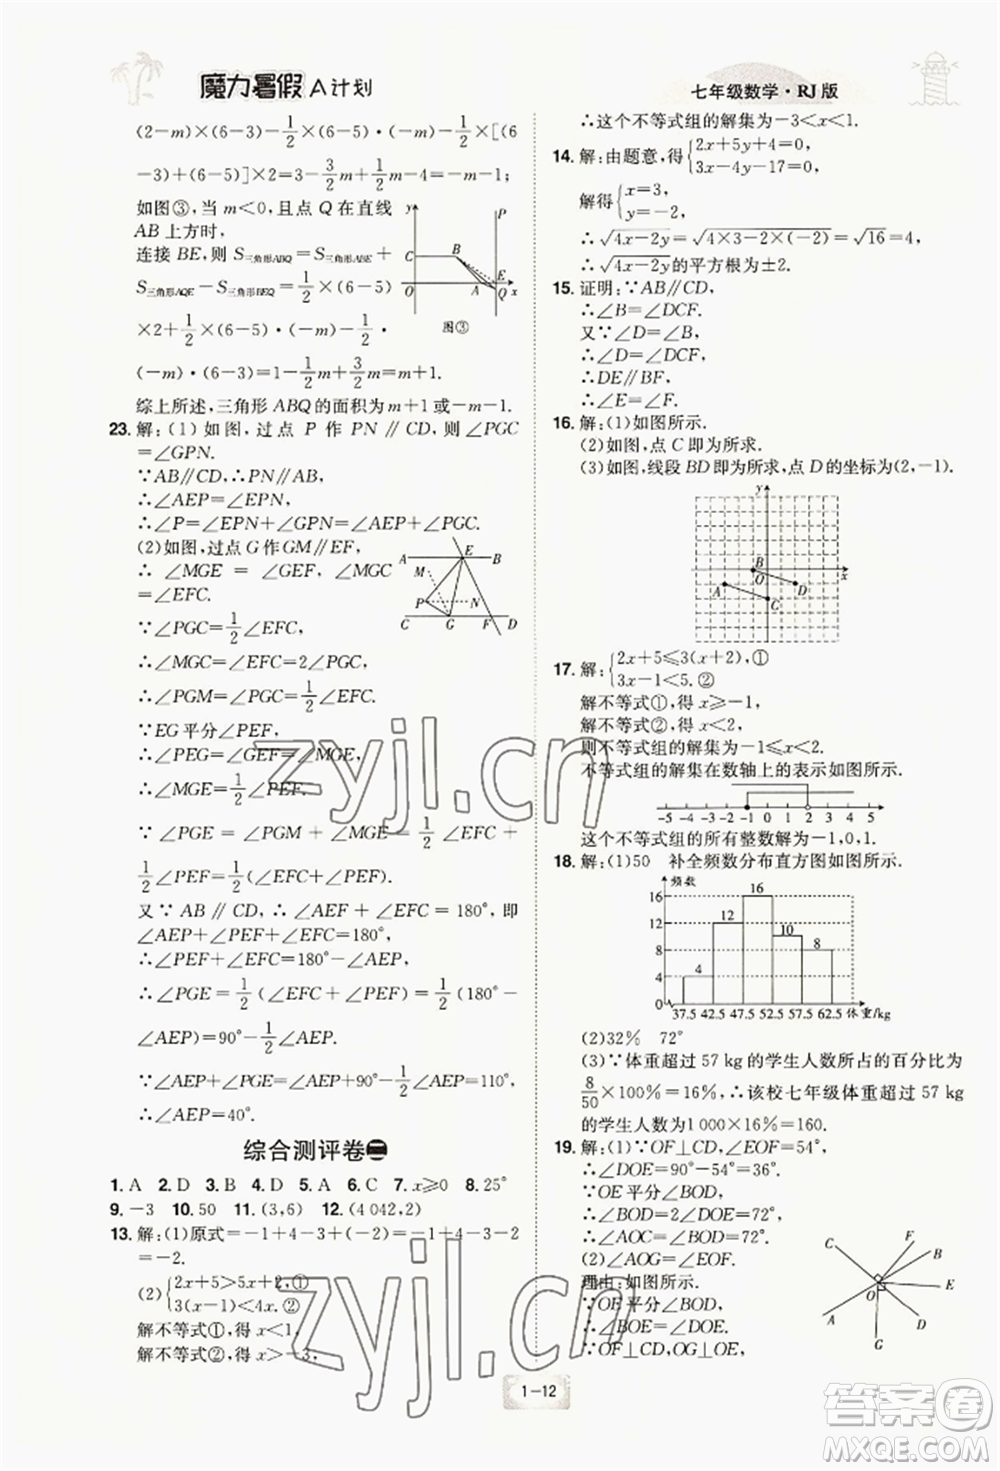 魔力暑假A计划
七年级数学·RJ版
(2-m)×(6-3)-1/2×(6-5)·(-m)-1/2×[(6
-3)+(6-5)]×2=3-3/2m+1/2m-4=-m-1;
如图③,当 m<0,且点 Q 在直线
AB 上方时,
连接 BE,则 S三角形ABQ=S三角形ABE+
S三角形AQE-S三角形BEQ=1/2×(6-5)
×2+1/2×(6-5)·(-m)-1/2×
·(-m)·(6-3)=1-1/2m+3/2m=m+1.
y P C B E O A Q x
图③
综上所述,三角形 ABQ 的面积为 m+1 或-m-1.
23.解:(1)如图,过点 P 作 PN∥CD,则∠PGC
=∠GPN.
∵AB∥CD,∴PN∥AB.
∴∠AEP=∠EPN.
∴∠P=∠EPN+∠GPN=∠AEP+∠PGC.
(2)如图,过点 G 作 GM∥EF,
∴∠MGE=∠GEF,∠MGC
=∠EFC.
∵∠PGC=1/2∠EFC,
∴∠MGC=∠EFC=2∠PGC.
∴∠PGM=∠PGC=1/2∠EFC.
A E B M P N C G F D
∵EG 平分∠PEF,
∴∠PEG=∠GEF=∠MGE=
1/2∠PEF.
∵∠PGE=∠PGM+∠MGE=1/2∠EFC+
1/2∠PEF,
又∵AB∥CD,∴∠AEF+∠EFC=180°,即
∠AEP+∠PEF+∠EFC=180°.
∴∠PEF+∠EFC=180°-∠AEP.
∴∠PGE=1/2(∠PEF+∠EFC)=1/2(180°-
∠AEP)=90°-1/2∠AEP.
∵∠AEP+∠PGE=90°+1/2∠AEP=110°,
∴∠AEP=40°.
综合测评卷二
1.A 2.D 3.B 4.D 5.A 6.C 7.x⩾0 8.25°
9.-3 10.50 11.(3,6) 12.(4 042,2)
13.解:(1)原式=-1+4-3+(-2)=-1+4-3-2
=-2.
(2){2x+5>5x+2,①
3(x-1)<4x.②
解不等式①,得 x<1,
解不等式②,得 x>-3,
∴这个不等式组的解集为-3<x<1.
14.解:由题意,得{2x+5y+4=0,
3x-4y-17=0,
解得{x=3,
y=-2,
∴√4x-2y=√4×3-2×(-2)=√16=4,
∴√4x-2y的平方根为±2.
15.证明:∵AB∥CD,
∴∠B=∠DCF.
又∵∠D=∠B,
∴∠D=∠DCF.
∴DE∥BF.
∴∠E=∠F.
16.解:(1)如图所示.
(2)如图,点 C 即为所求.
(3)如图,线段 BD 即为所求,点 D 的坐标为(2,-1).
y B O x A D C
17.解:{2x+5⩽3(x+2),①
3x-1<5.②
解不等式①,得 x⩾-1,
解不等式②,得 x<2,
则不等式组的解集为-1⩽x<2.
不等式组的解集在数轴上的表示如图所示.
-5 -4 -3 -2 -1 0 1 2 3 4 5
这个不等式组的所有整数解为-1,0,1.
18.解:(1)50 补全频数分布直方图如图所示.
频数
16 16
12 12
10
8 8
4 4
0
37.5 42.5 47.5 52.5 57.5 62.5 体重/kg
(2)32% 72°
(3)∵体重超过 57 kg 的学生人数所占的百分比为
8/50×100%=16%,∴该校七年级体重超过 57 kg
的学生人数为1 000×16%=160.
19.解:(1)∵OF⊥CD,∠EOF=54°,
∴∠DOE=90°-54°=36°.
∵OE 平分∠BOD,
∴∠BOD=2∠DOE=72°.
(2)∠AOG=∠EOF.
理由:如图所示.
∵OE 平分∠BOD,
∴∠BOE=∠DOE.
∵OF⊥CD,OG⊥OE,
C F B E O A D G
1-12
zyjl.cn
zyjl.cn
答案圈
MXQE.COM